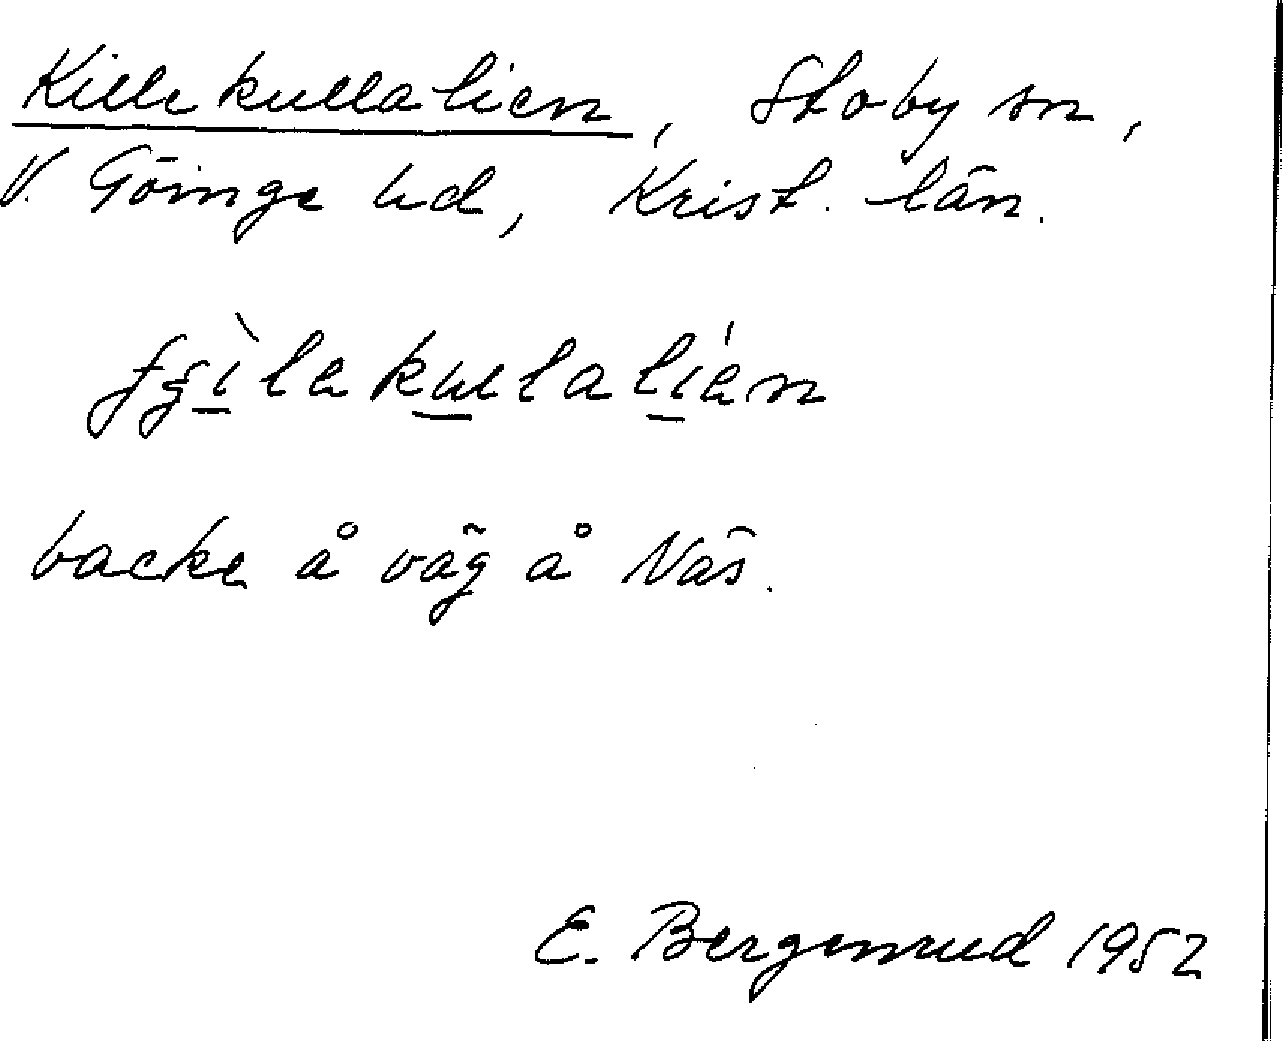 Killekullalien, Stoby sn,
V. Göinge hd, Krist. län.
backe å väg å Näs.
E. Bergenrud 1952